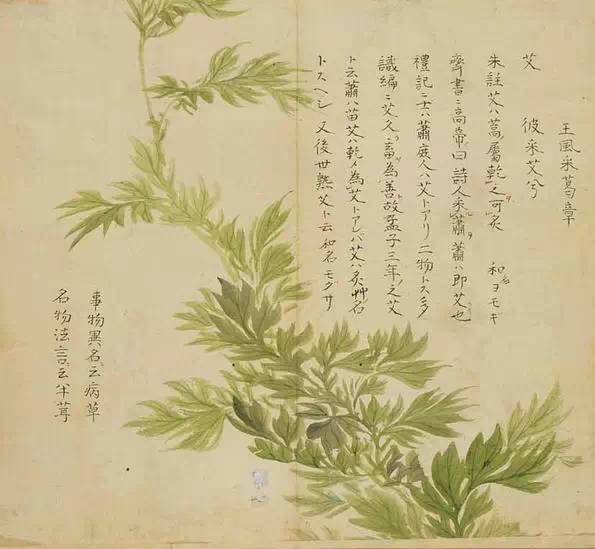 王風采葛章
艾 彼采艾兮
朱註艾ハ蒿屬乾之可炙 和名ヨモギ
齊書ニ高帝曰詩人采蕭蕭ハ即艾也
禮記ニ士ハ蕭庶人ハ艾トアリ二物トス
識編ニ艾久畜為善故孟子三年之艾
ト云蕭ハ苗艾ハ乾メ為艾トアレバ艾ハ炙艸名
トスヘシ 又後世熟艾ト云和名モクサ
事物異名ニ云病草
名物法言ニ云